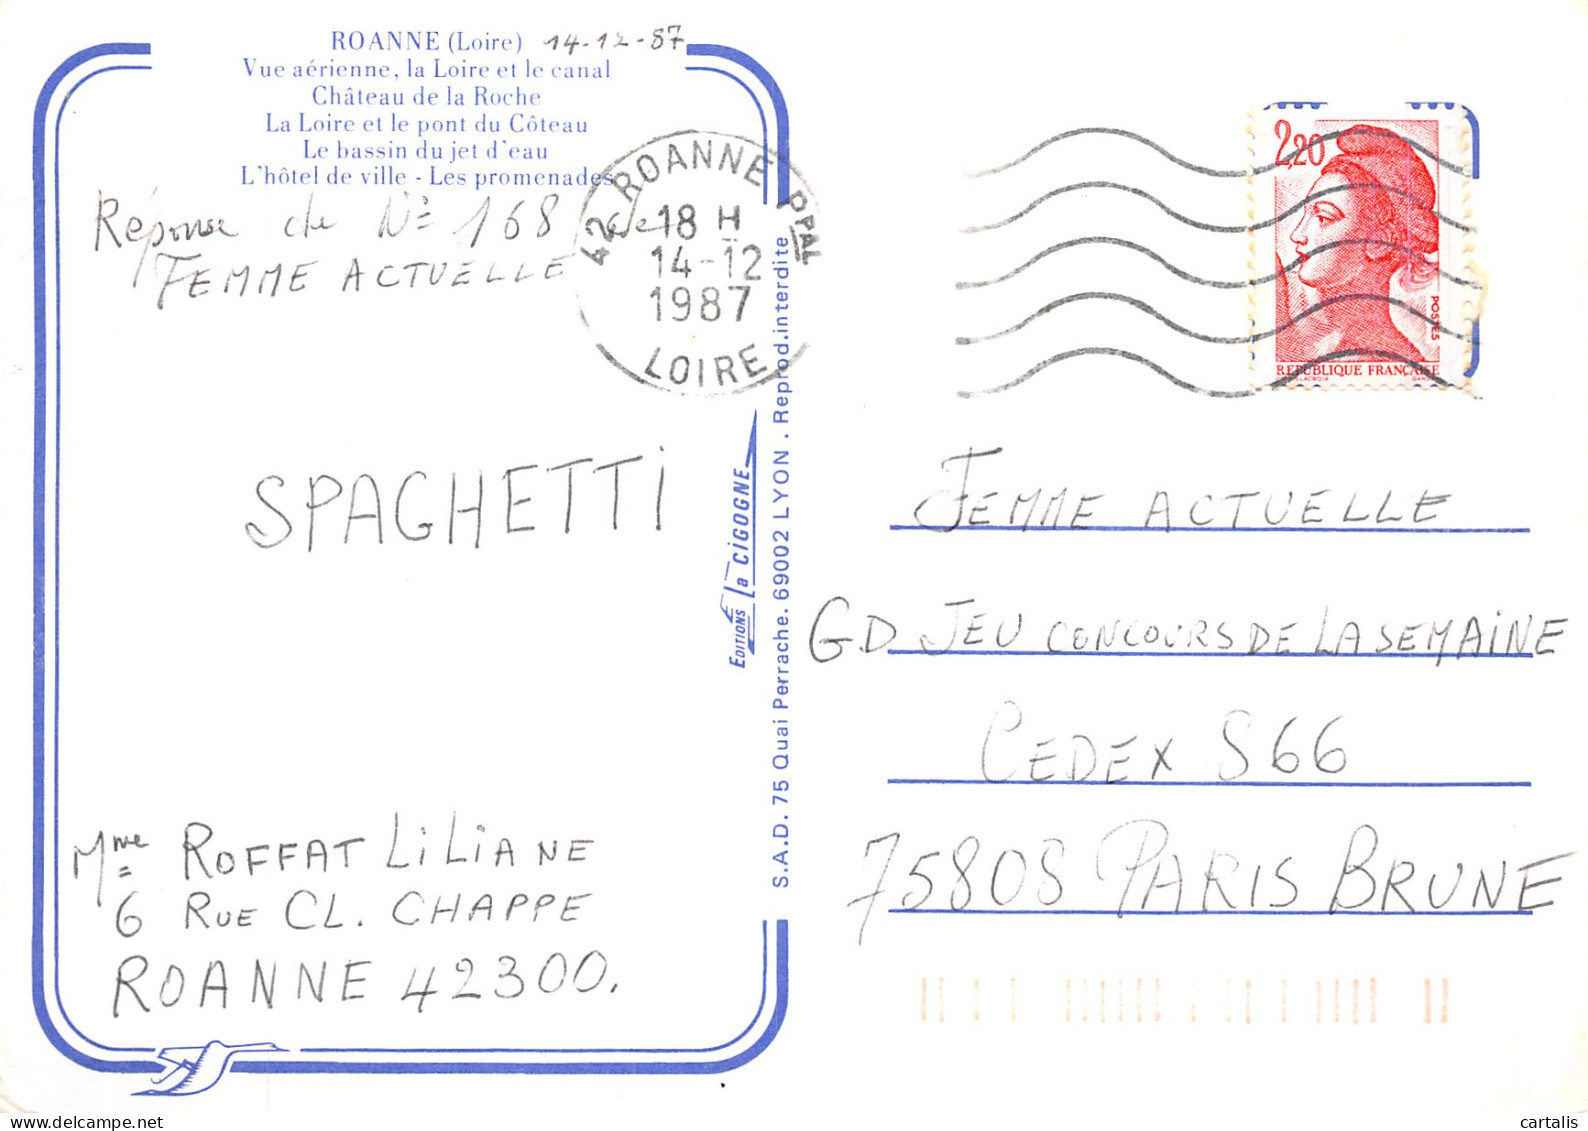 ROANNE (Loire) 14-12-87
Vue aérienne, la Loire et le canal
Château de la Roche
La Loire et le pont du Côteau
Le bassin du jet d'eau
L'hôtel de ville - Les promenades
Réponse de N= 168 de
FEMME ACTUELLE
42 ROANNE PPAL
18 H
14-12
1987
LOIRE
SPAGHETTI
Mme ROFFAT LILIANE
6 RUE CL. CHAPPE
ROANNE 42300.
EDITIONS La CIGOGNE
S.A.D. 75 Quai Perrache. 69002 LYON . Reprod.interdite
2,20
POSTES
REPUBLIQUE FRANÇAISE
DELACROIX GANDON
FEMME ACTUELLE
GD JEU CONCOURS DE LA SEMAINE
CEDEX S66
75808 PARIS BRUNE
cartalis